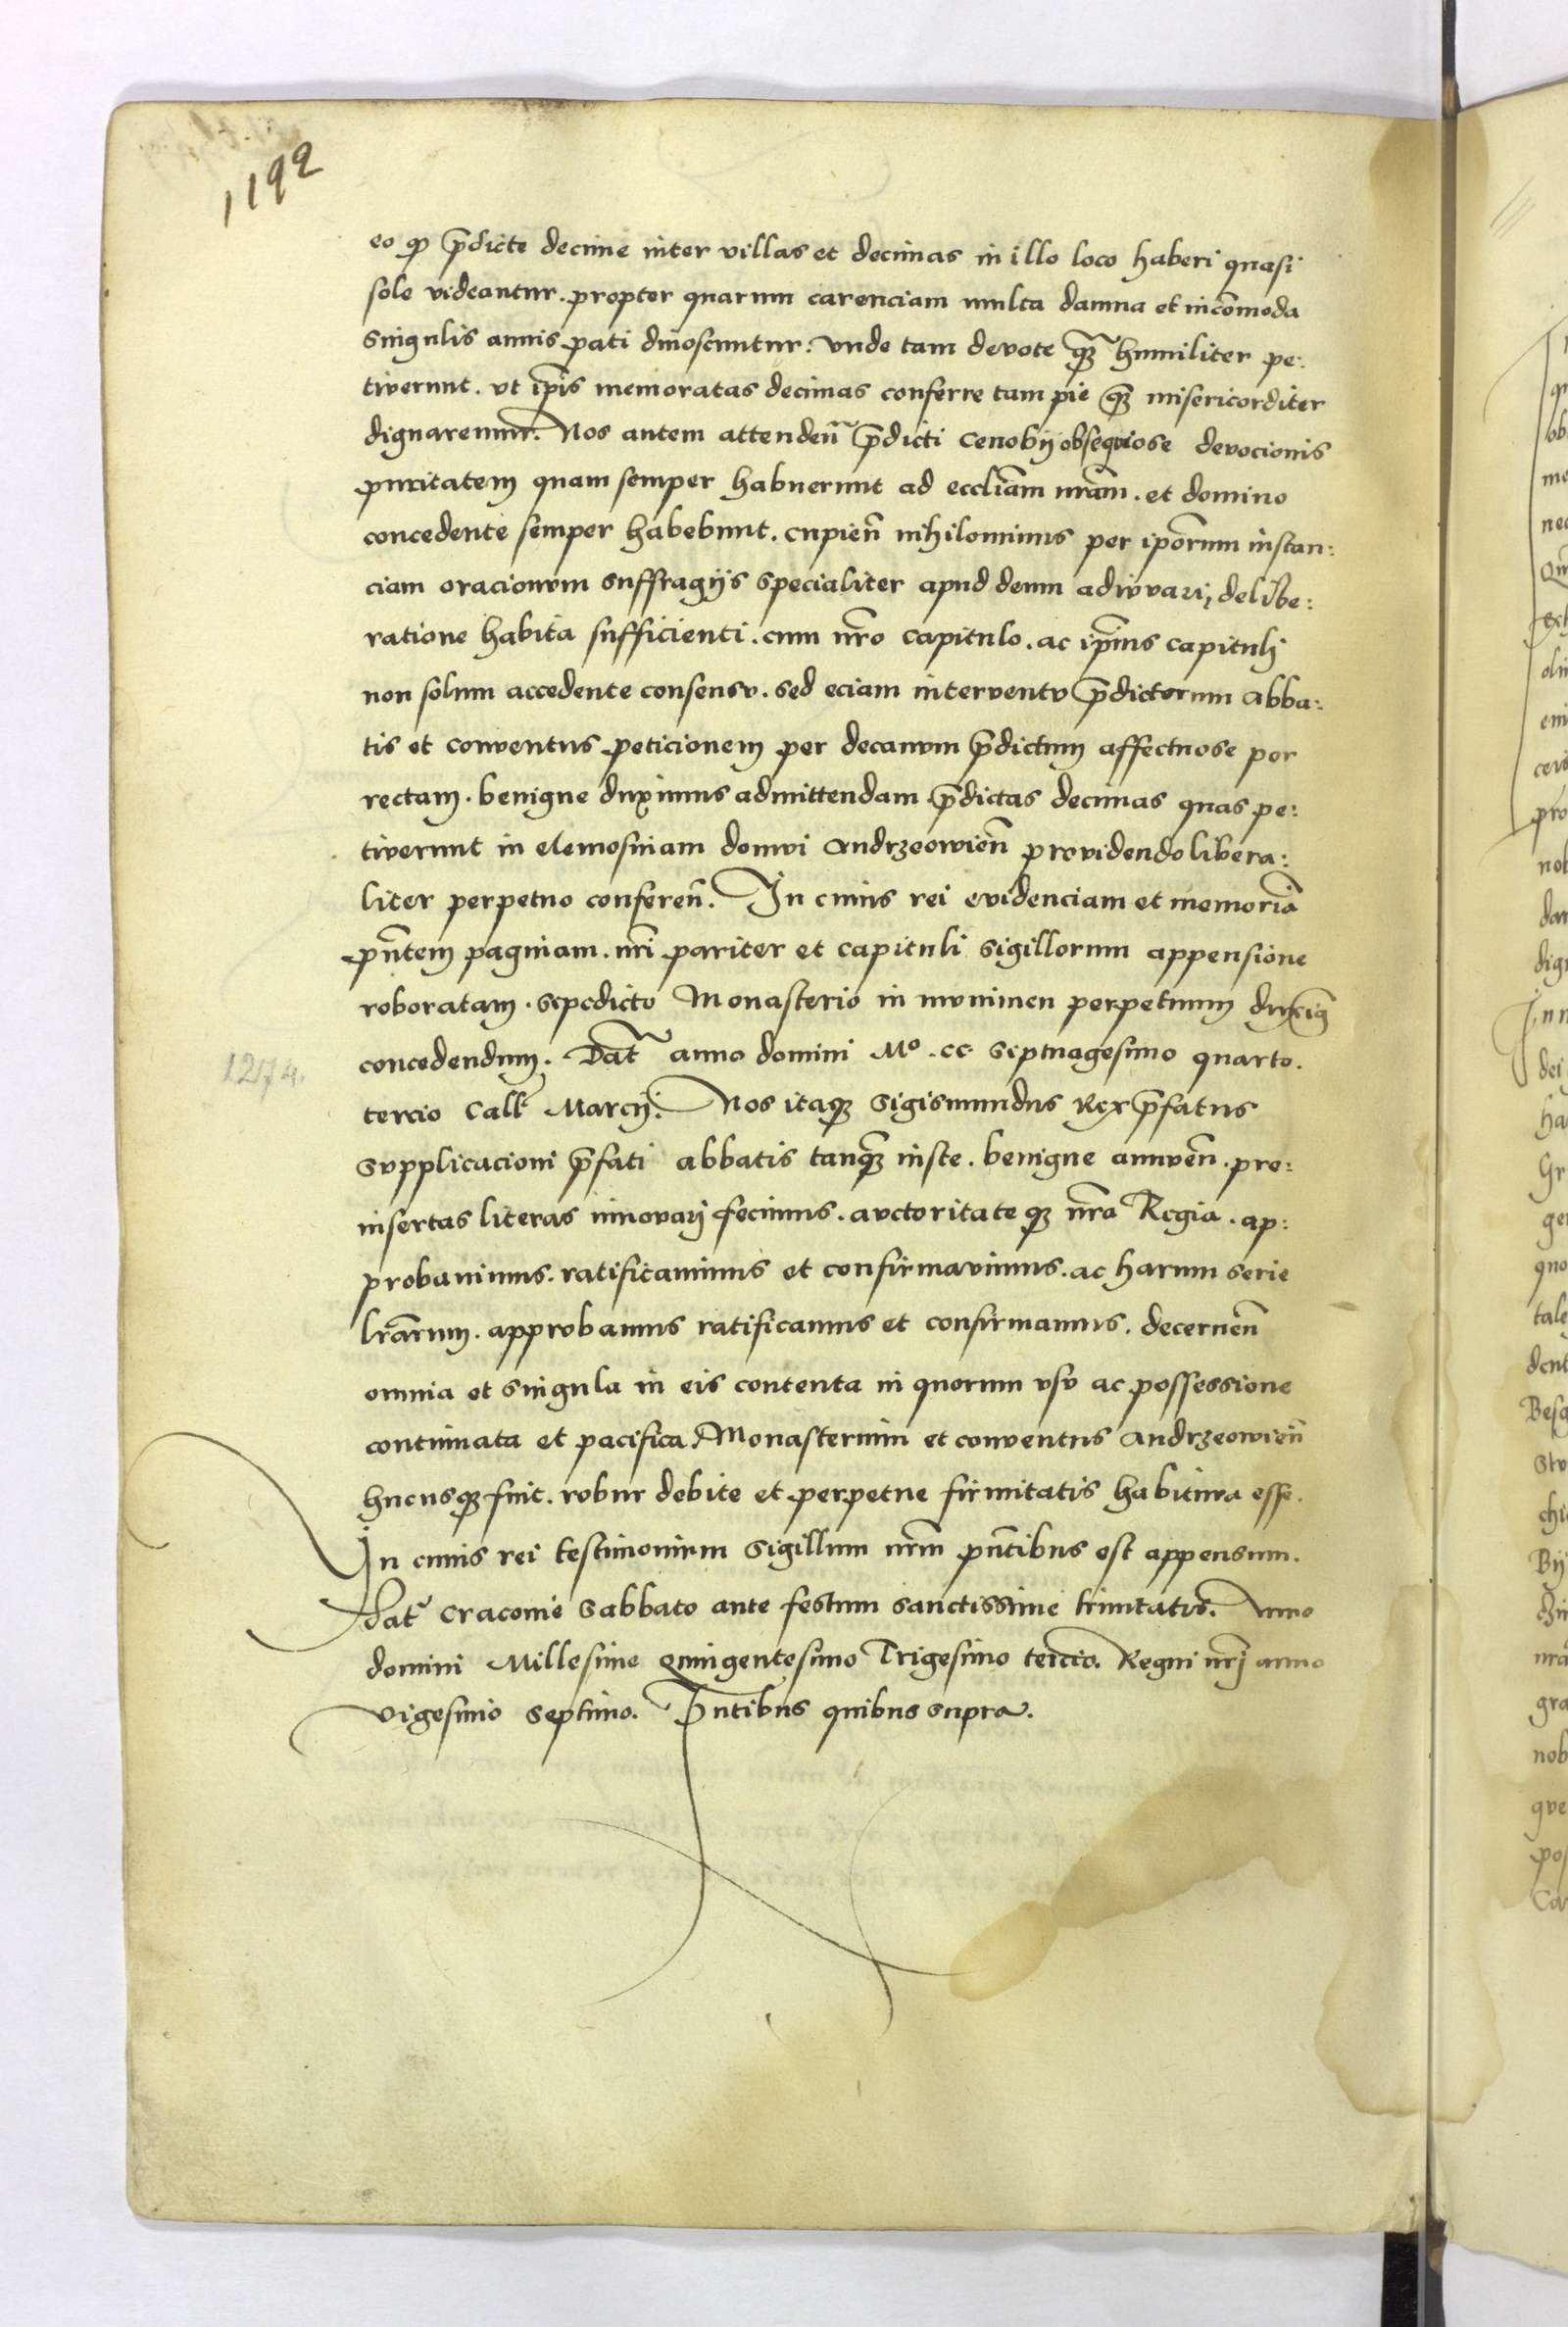 1192
eo qꝫ p̄dicte decime inter villas et decimas in illo loco haberi quasi
sole videantur. propter quarum carenciam multa damna et incōmoda
singulis annis pati dinoscuntur: vnde tam devote qꝫ̄ humiliter pe:
tiverunt. vt ip̄is memoratas decimas conferre tam pie qꝫ̄ misericorditer
dignaremur. Nos autem attenden̄ p̄dicti cenobij obsequiose devocionis
puritatem quam semper habuerunt ad eccliam̄ nrām. et domino
concedente semper habebunt. cupien̄ nihilominus per ip̄orum instan:
ciam oracionum suffragijs specialiter apud deum adiuvari, delibe:
ratione habita sufficienti. cum nr̄o capitulo. ac ip̄ius capituli
non solum accedente consensu. sed eciam interventu p̄dictorum abba:
tis et conventus peticionem per decanum p̄dictum affectuose por
rectam. benigne duximus admittendam p̄dictas decimas quas pe:
tiverunt in elemosinam domui andrzeowien̄ providendo libera:
liter perpetuo conferen̄. In cuius rei evidenciam et memoriā
pn̄tem paginam. nr̄i pariter et capituli sigillorum appensione
roboratam. sepedicto Monasterio in munimen perpetuum duxim̄
concedendum. Dat̄ anno domini Mº. cc septuagesimo quarto.
1274.
tercio Call̄ Marcij. Nos itaqꝫ Sigismundus Rex p̄fatus
supplicacioni p̄fati abbatis tanqꝫ̄ iuste. benigne annuen̄. pre:
insertas literas innovari fecimus. auctoritate qꝫ nr̄a Regia. ap:
probavimus. ratificavimus et confirmavimus. ac harum serie
lr̄arum. approbamus ratificamus et confirmamus. decernen̄
omnia et singula in eis contenta in quorum usu ac possessione
continuata et pacifica Monasterium et conventus andrzeowien̄
hucusqꝫ fuit. robur debite et perpetue firmitatis habitura esse.
In cuius rei testimonium sigillum nr̄m pn̄tibus est appensum.
Dat̄ Cracovie Sabbato ante festum sanctissime trinitatis. Anno
domini Millesimo quingentesimo Trigesimo tercio. Regni nr̄j anno
vigesimo septimo. Pn̄tibus quibus supra.